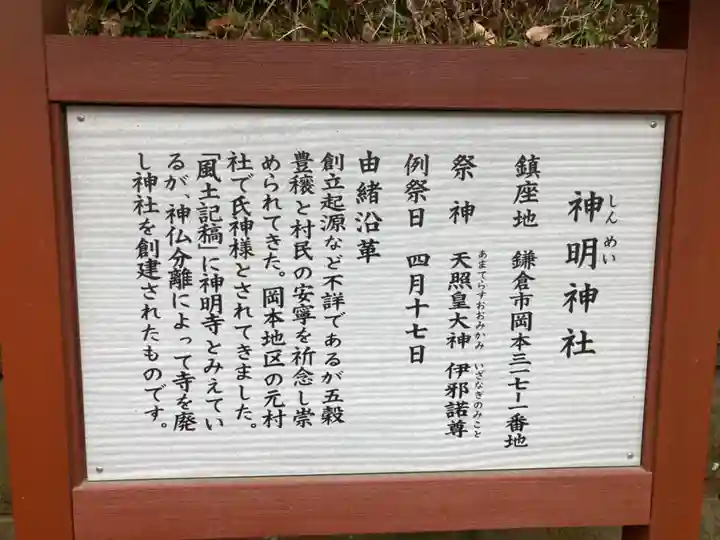 神明神社
しんめい
鎮座地 鎌倉市岡本三一七ー一番地
祭神 天照皇大神 伊邪諾尊
あまてらすおおみかみ いざなぎのみこと
例祭日 四月十七日
由緒沿革
創立起源など不詳であるが五穀
豊穣と村民の安寧を祈念し崇
められてきた。岡本地区の元村
社で氏神様とされてきました。
「風土記稿」に神明寺とみえてい
るが、神仏分離によって寺を廃
し神社を創建されたものです。